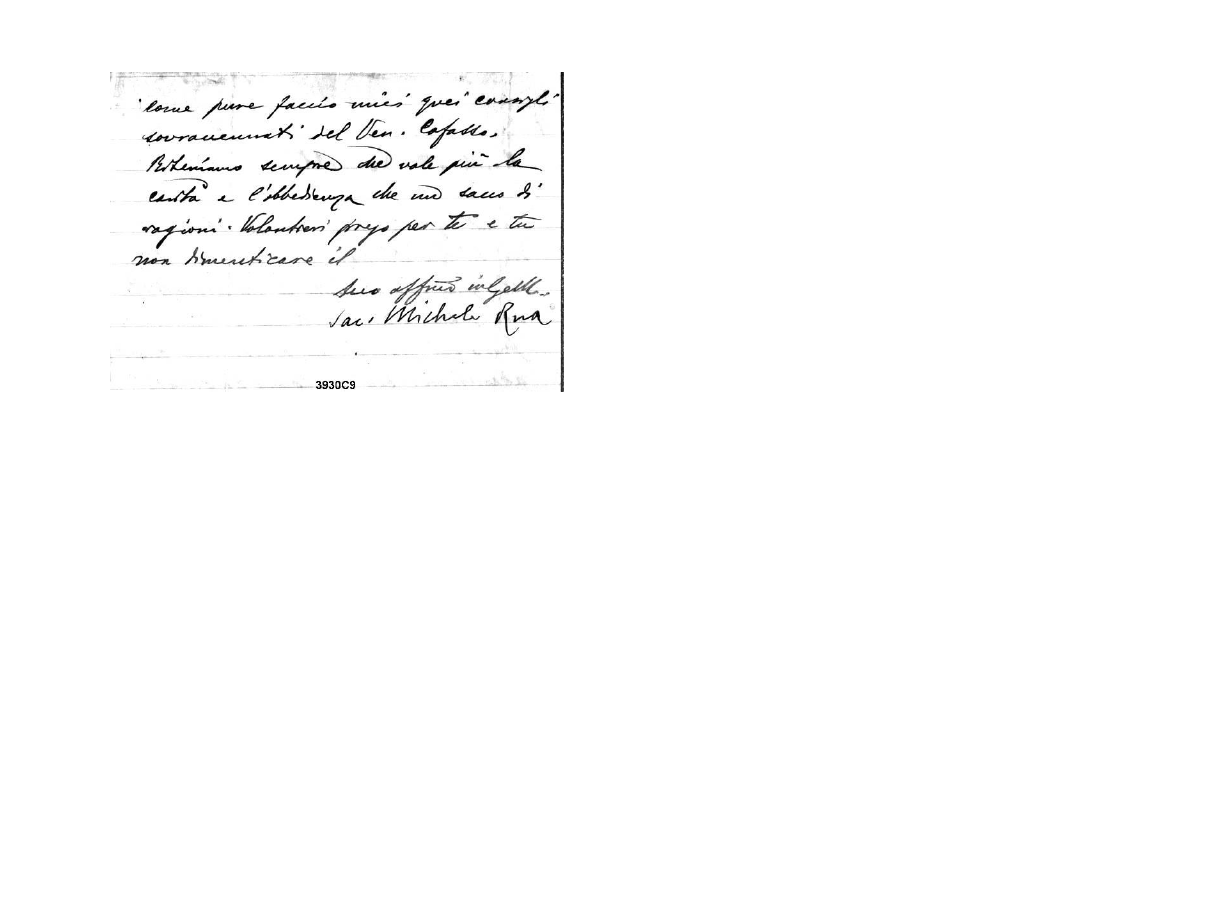 come pure faccio miei quei consigli
sovraccennati del Ven. Cafasso.
Riteniamo sempre che vale più la
carità e l'obbedienza che un sacco di
ragioni. Volontieri prego per te e tu
non dimenticare il
tuo affmo in G. e M.
Sac. Michele Rua
3930C9